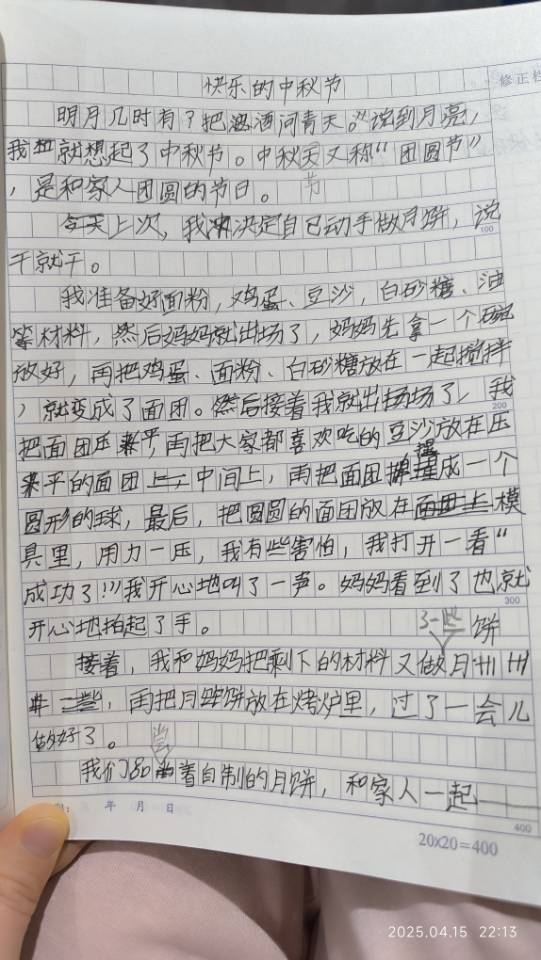 快乐的中秋节
修正栏
明月几时有？把酒问青天。"说到月亮，
我就想起了中秋节。中秋节又称"团圆节"
，是和家人团圆的节日。
上次，我决定自己动手做月饼，说
干就干。
100
我准备好面粉，鸡蛋、豆沙，白砂糖、油
等材料，然后妈妈就出场了，妈妈先拿一个碗
放好，再把鸡蛋、面粉、白砂糖放在一起搅拌
，就变成了面团。然后接着我就出场了，我
200
把面团压平，再把大家都喜欢吃的豆沙放在压
平的面团中间上，再把面团揉成一个
圆形的球，最后，把圆圆的面团放在模
具里，用力一压，我有些害怕，我打开一看"
成功了!!!我开心地叫了一声。妈妈看到了也就
300
开心地拍起了手。
了一些饼
接着，我和妈妈把剩下的材料又做月
，再把月饼放在烤炉里，过了一会儿
做好了。
我们品尝着自制的月饼，和家人一起——
年 月 日
400
20×20=400
2025.04.15 22:13